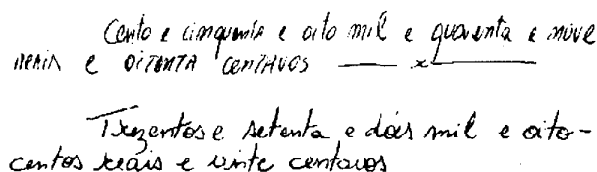 Cento e cinquenta e oito mil e quarenta e nove
reais e oitenta centavos — x —
Trezentos e setenta e dois mil e oito-
centos reais e vinte centavos